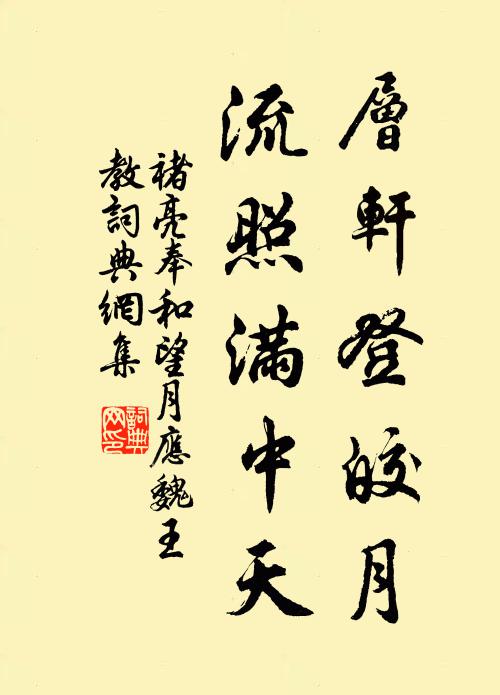 層軒登皎月
流照滿中天
褚亮奉和望月應魏王
教詞典網集
詞典網印